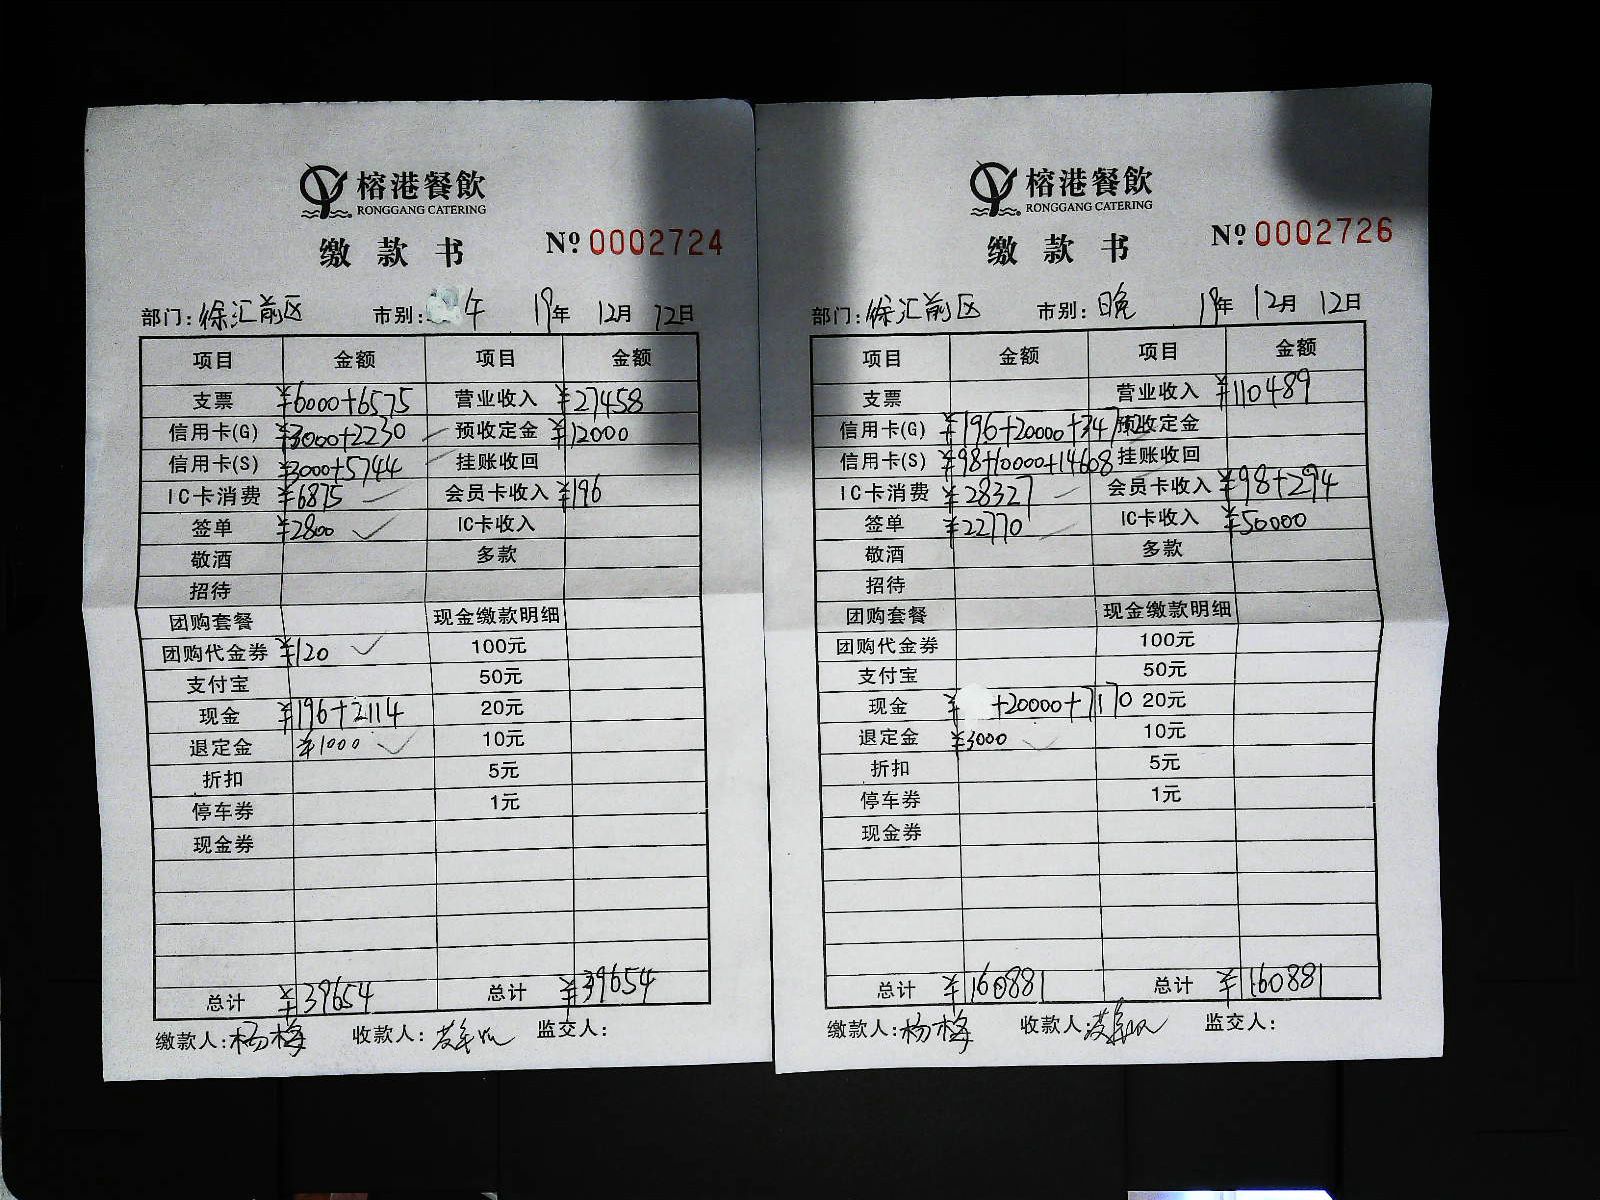 榕港餐飲
RONGGANG CATERING
缴款书 Nº 0002724
部门: 徐汇前区 市别: 午 19年 12月 12日
项目 金额 项目 金额
支票 ¥6000+6575 营业收入 ¥27458
信用卡(G) ¥3000+2230 预收定金 ¥12000
信用卡(S) ¥3000+5744 挂账收回
IC卡消费 ¥6875 会员卡收入 ¥196
签单 ¥2800 IC卡收入
敬酒 多款
招待
团购套餐 现金缴款明细
团购代金券 ¥120 100元
支付宝 50元
现金 ¥196+2114 20元
退定金 ¥1000 10元
折扣 5元
停车券 1元
现金券
总计 ¥39654 总计 ¥39654
缴款人: 杨梅 收款人: 监交人:
榕港餐飲
RONGGANG CATERING
缴款书 Nº 0002726
部门: 徐汇前区 市别: 晚 19年 12月 12日
项目 金额 项目 金额
支票 营业收入 ¥110489
信用卡(G) ¥196+20000+34712 预收定金
信用卡(S) ¥98+10000+14608 挂账收回
IC卡消费 ¥28327 会员卡收入 ¥98+294
签单 ¥22770 IC卡收入 ¥50000
敬酒 多款
招待
团购套餐 现金缴款明细
团购代金券 100元
支付宝 50元
现金 ¥ +20000+7170 20元
退定金 ¥3000 10元
折扣 5元
停车券 1元
现金券
总计 ¥160881 总计 ¥160881
缴款人: 杨梅 收款人: 监交人: